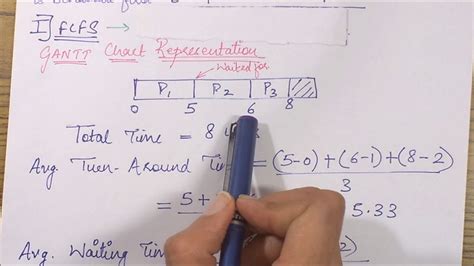 I] FCFS →
GANTT Chart Representation
Waited for
P₁ P₂ P₃
0 5 6 8
Total Time = 8
Avg. Turn-Around = (5-0) + (6-1) + (8-2)
3
= 5 + 5.33
Avg. Waiting Time